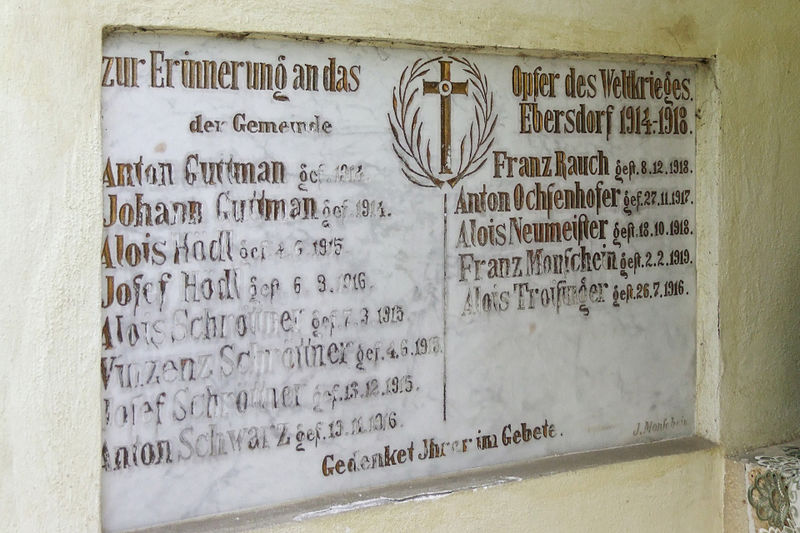 zur Erinnerung an das Opfer des Weltkrieges.
der Gemeinde Ebersdorf 1914-1918.
Anton Guttman gef. 1914.
Johann Guttman gef. 1914.
Alois Hödl gef. 4. 6. 1915.
Josef Hödl gest. 6. 9. 1916.
Alois Schröttner gef. 7. 3. 1915.
Vinzenz Schröttner gef. 4. 6. 1915.
Josef Schröttner gef. 13. 12. 1915.
Anton Schwarz gef. 13. 11. 1916.
Franz Rauch gest. 8. 12. 1918.
Anton Ochsenhofer gef. 27. 11. 1917.
Alois Neumeister gest. 18. 10. 1918.
Franz Monschein gest. 2. 2. 1919.
Alois Troisinger gest. 26. 7. 1916.
Gedenket Jhrer im Gebete.
J. Monschein